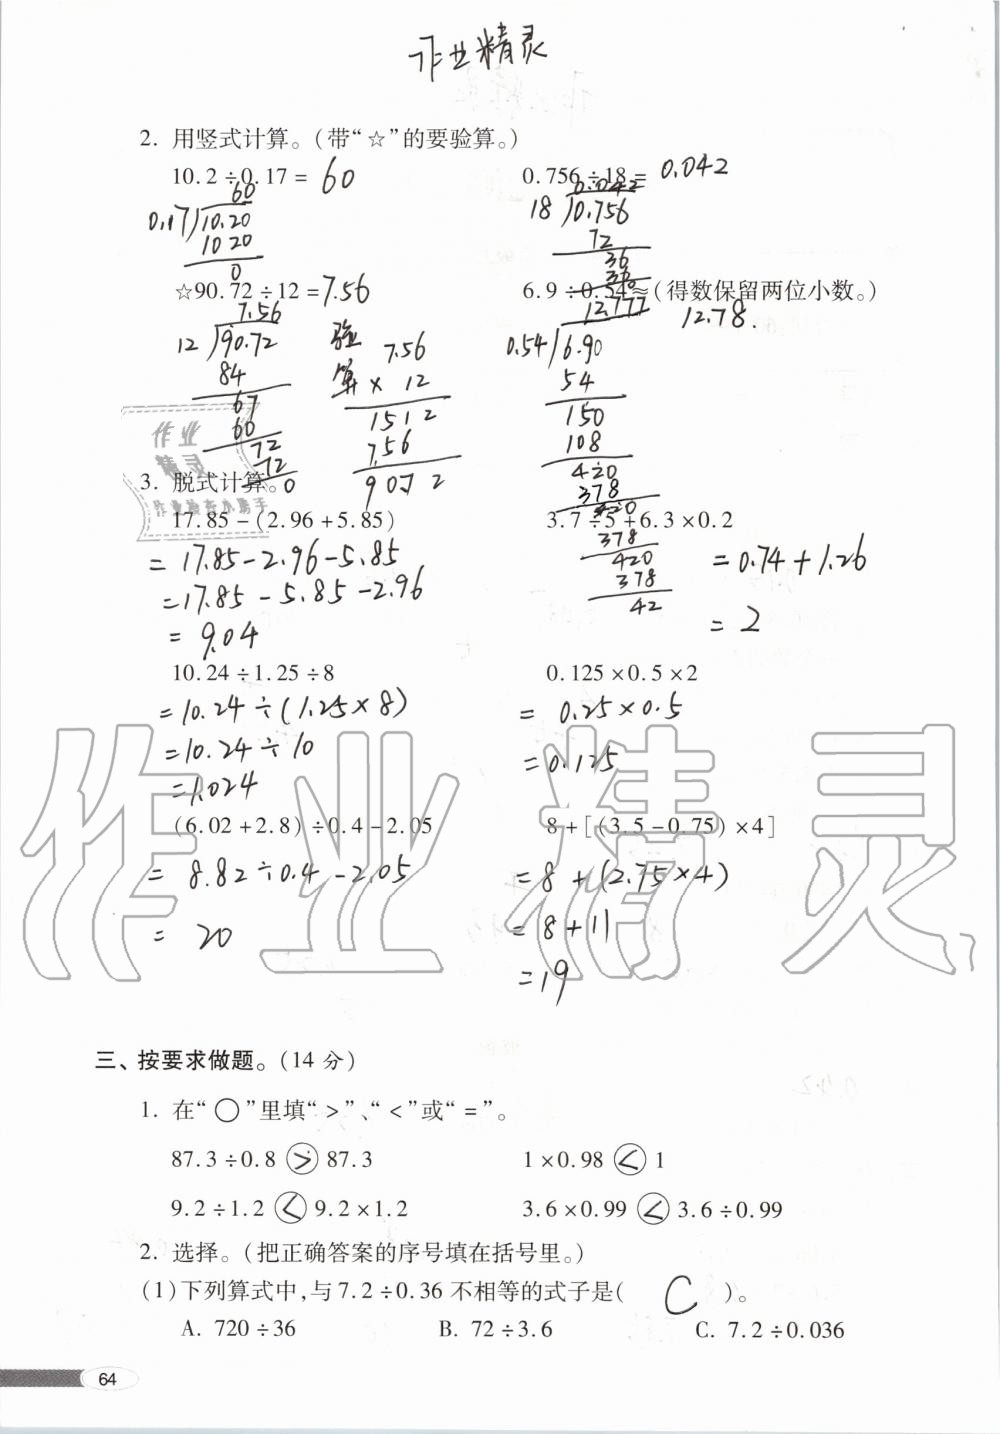 作业精灵
2. 用竖式计算。(带“☆”的要验算。)
10.2÷0.17= 60
0.756÷18= 0.042
60
0.17 10.20
1020
0
0.042
18 0.756
72
36
36
0
☆90.72÷12=7.56
6.9÷0.54≈(得数保留两位小数。)
12.78.
7.56
12 90.72
84
67
60
72
72
0
验算
7.56
× 12
1512
756
9072
12.777
0.54 6.90
54
150
108
420
378
420
378
420
378
42
作业
精灵
3. 脱式计算。
17.85-(2.96+5.85)
=17.85-2.96-5.85
=17.85-5.85-2.96
=9.04
3.7÷5+6.3×0.2
=0.74+1.26
=2
10.24÷1.25÷8
=10.24÷(1.25×8)
=10.24÷10
=1.024
0.125×0.5×2
= 0.25×0.5
=0.125
(6.02+2.8)÷0.4-2.05
= 8.82÷0.4-2.05
= 20
8+[(3.5-0.75)×4]
=8+(2.75×4)
=8+11
=19
作业精灵
三、按要求做题。(14分)
1. 在“○”里填“>”、“<”或“=”。
87.3÷0.8 > 87.3
1×0.98 < 1
9.2÷1.2 < 9.2×1.2
3.6×0.99 < 3.6÷0.99
2. 选择。(把正确答案的序号填在括号里。)
(1)下列算式中,与7.2÷0.36不相等的式子是( C )。
A. 720÷36 B. 72÷3.6 C. 7.2÷0.036
64